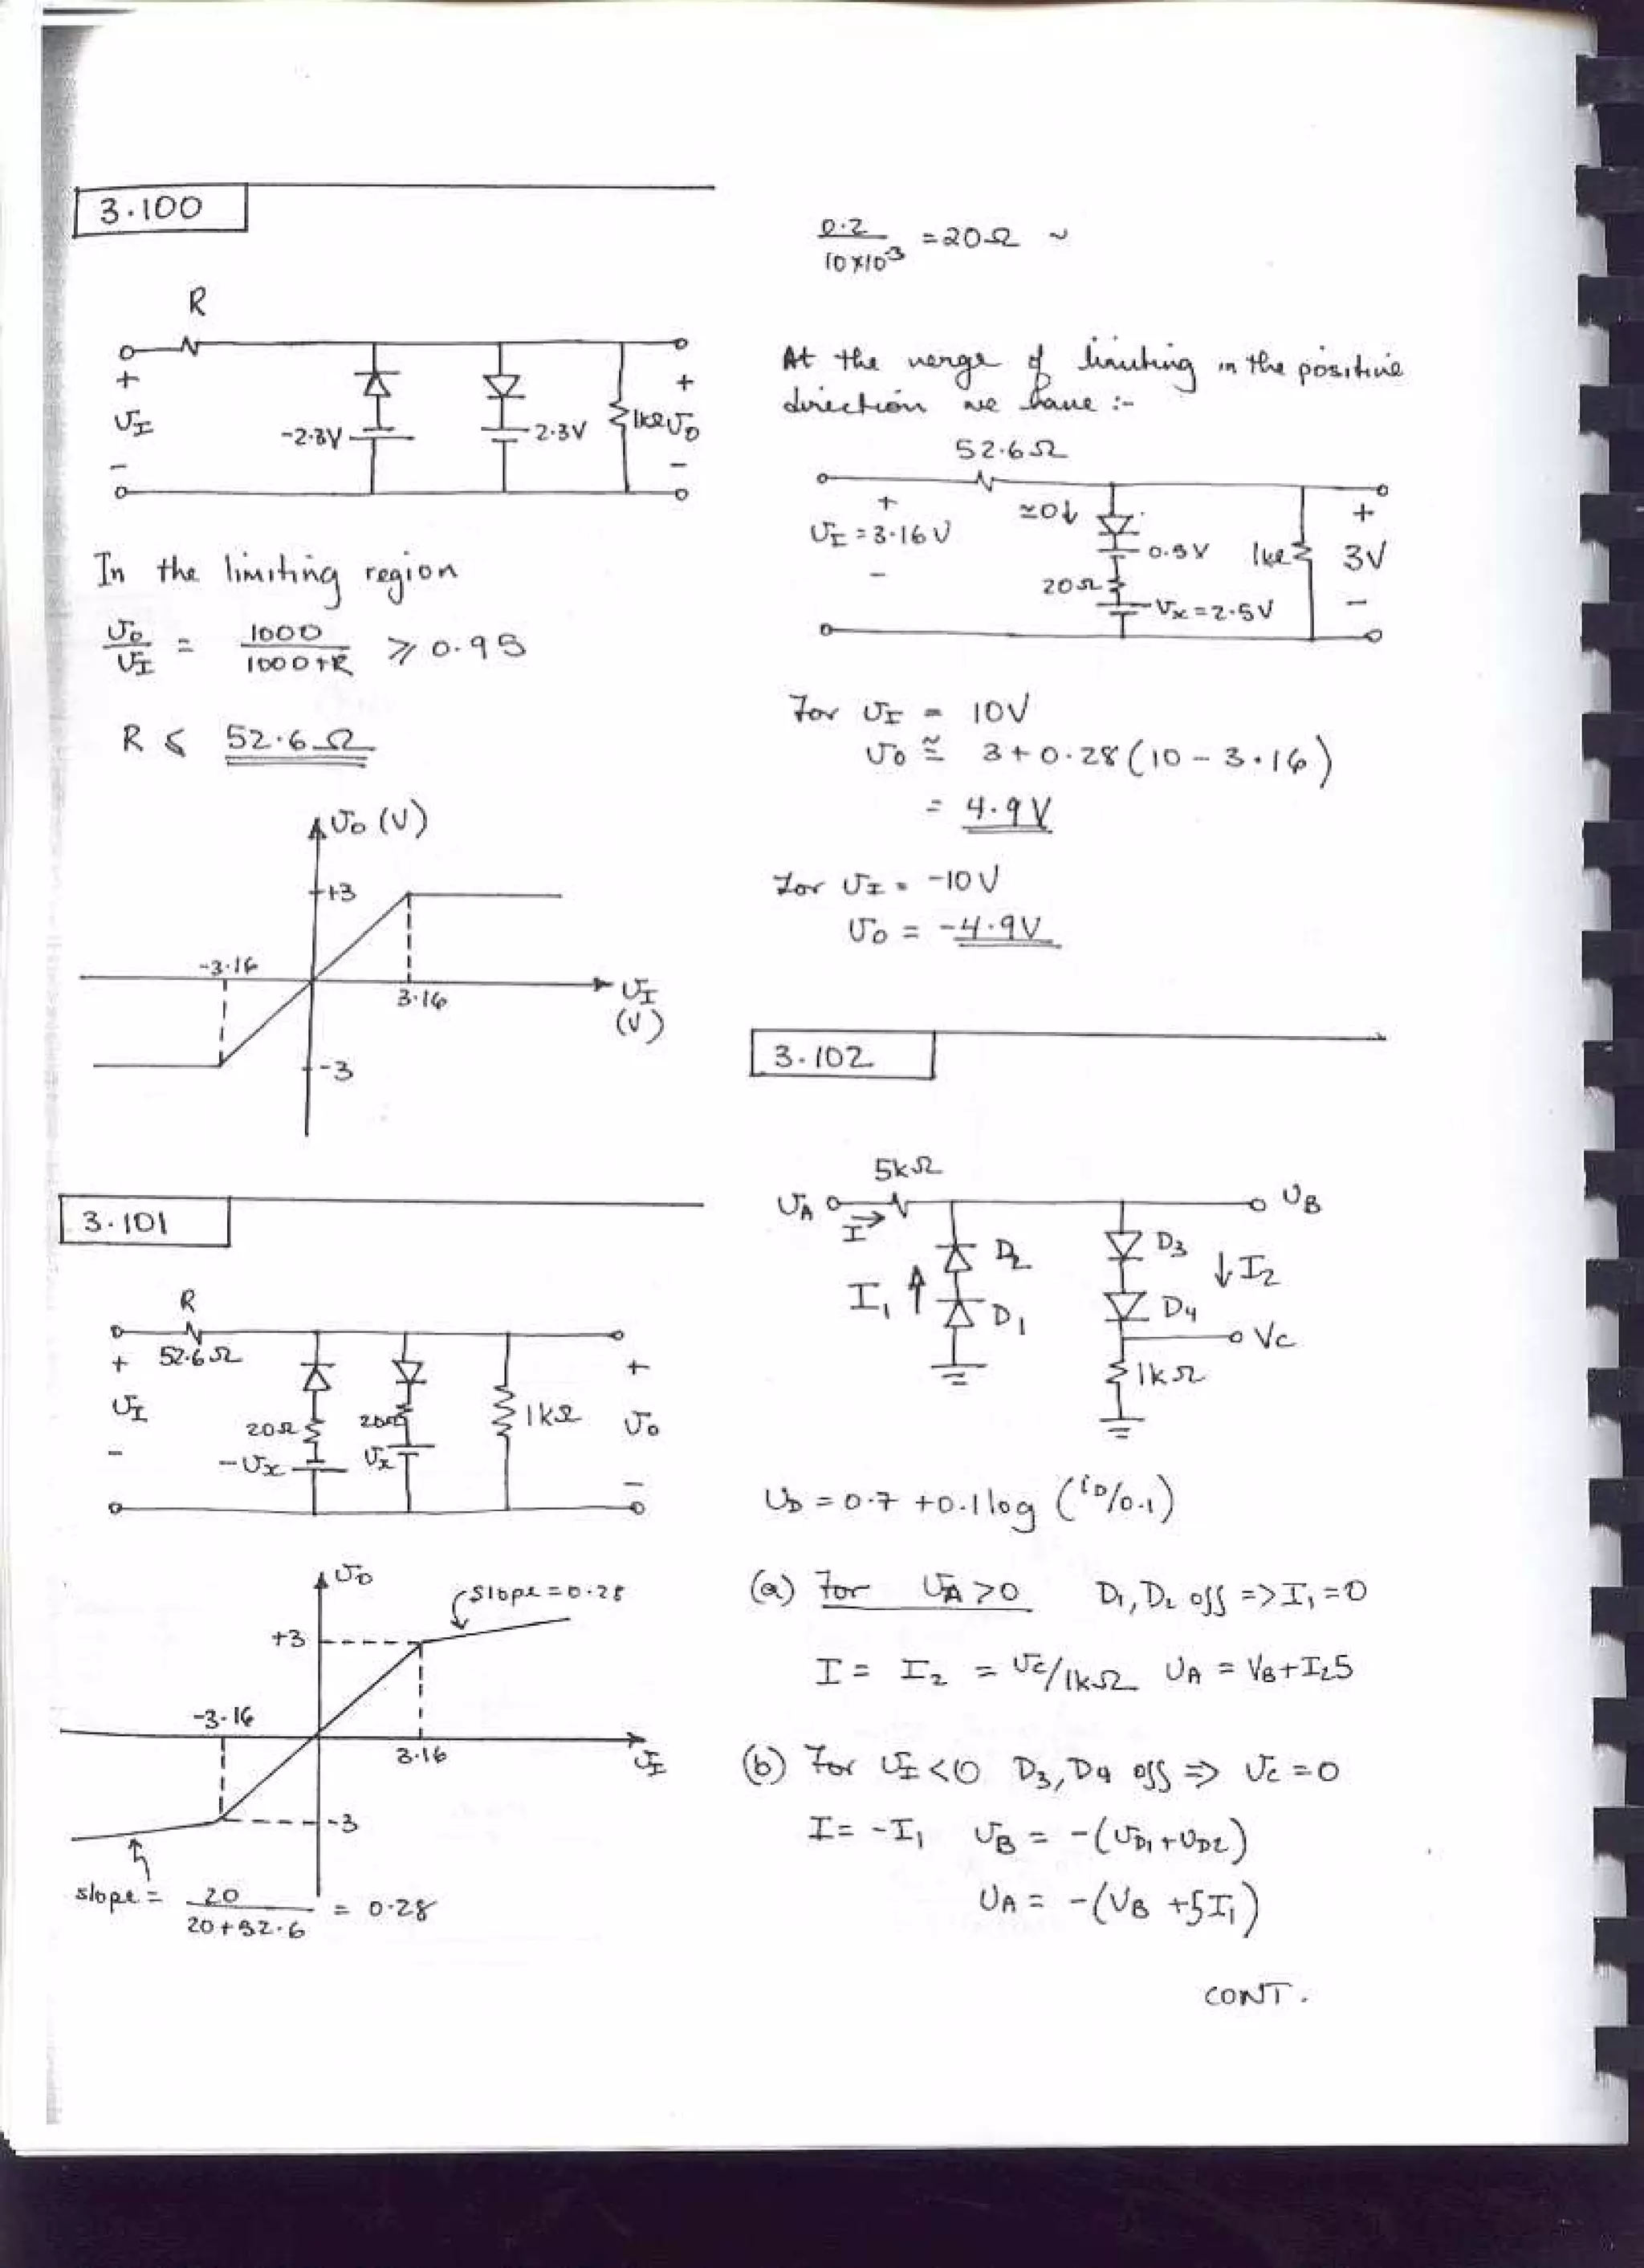 3.100
R
+
υI
-
-2.3V
2.3V
1kΩ
+
υO
-
In the limiting region
υo/υI = 1000/(1000+R) ⩾ 0.95
R ⩽ 52.6 Ω
υo (V)
+3
-3.16
3.16
υI
(V)
-3
3.101
R
52.6Ω
+
υI
-
20Ω
20Ω
-υx
υx
1kΩ
+
υo
-
υo
slope = 0.28
+3
-3.16
3.16
υI
-3
slope = 20/(20+52.6) = 0.28
0.2/(10×10⁻³) = 20Ω ~
At the verge of limiting in the positive
direction we have :-
52.6Ω
+
υI = 3.16V
-
≃0↓
0.5V
20Ω
υx = 2.5V
1kΩ
+
3V
-
For υI = 10V
υo ≅ 3 + 0.28(10 - 3.16)
= 4.9V
For υI = -10V
υo = -4.9V
3.102
5kΩ
υA
I
υB
D2
I1
D1
D3
↓I2
D4
Vc
1kΩ
υD = 0.7 + 0.1 log (iD/0.1)
(a) For υA > 0 D1, D2 off => I1 = 0
I = I2 = υc/1kΩ υA = VB + I25
(b) For υI < 0 D3, D4 off => υc = 0
I = -I1 υB = -(υD1 + υD2)
υA = -(VB + 5I1)
CONT.